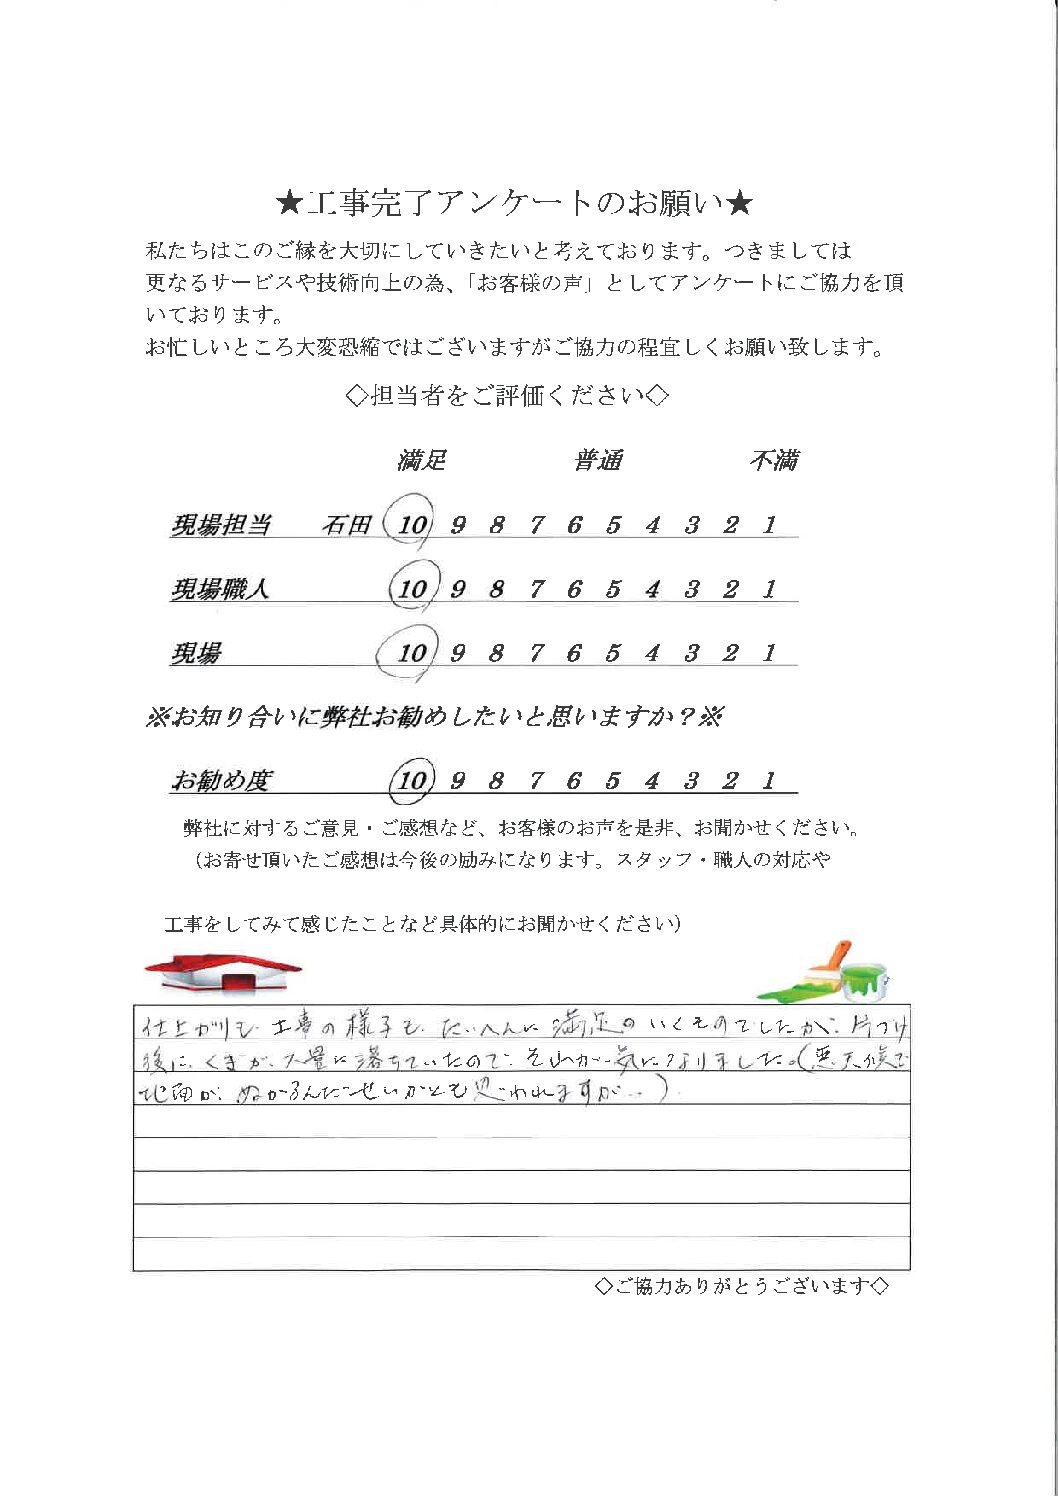 ★工事完了アンケートのお願い★
私たちはこのご縁を大切にしていきたいと考えております。つきましては
更なるサービスや技術向上の為、「お客様の声」としてアンケートにご協力を頂
いております。
お忙しいところ大変恐縮ではございますがご協力の程宜しくお願い致します。
◇担当者をご評価ください◇
満足 普通 不満
現場担当 石田 10 9 8 7 6 5 4 3 2 1
現場職人 10 9 8 7 6 5 4 3 2 1
現場 10 9 8 7 6 5 4 3 2 1
※お知り合いに弊社お勧めしたいと思いますか？※
お勧め度 10 9 8 7 6 5 4 3 2 1
弊社に対するご意見・ご感想など、お客様のお声を是非、お聞かせください。
（お寄せ頂いたご感想は今後の励みになります。スタッフ・職人の対応や
工事をしてみて感じたことなど具体的にお聞かせください）
仕上がりも、工事の様子も、たいへんに満足のいくものでしたが、片づけ
後に、くぎが、大量に落ちていたので、それが気になりました。（悪天候で
地面が、ぬかるんだせいかとも思われますが…）
◇ご協力ありがとうございます◇